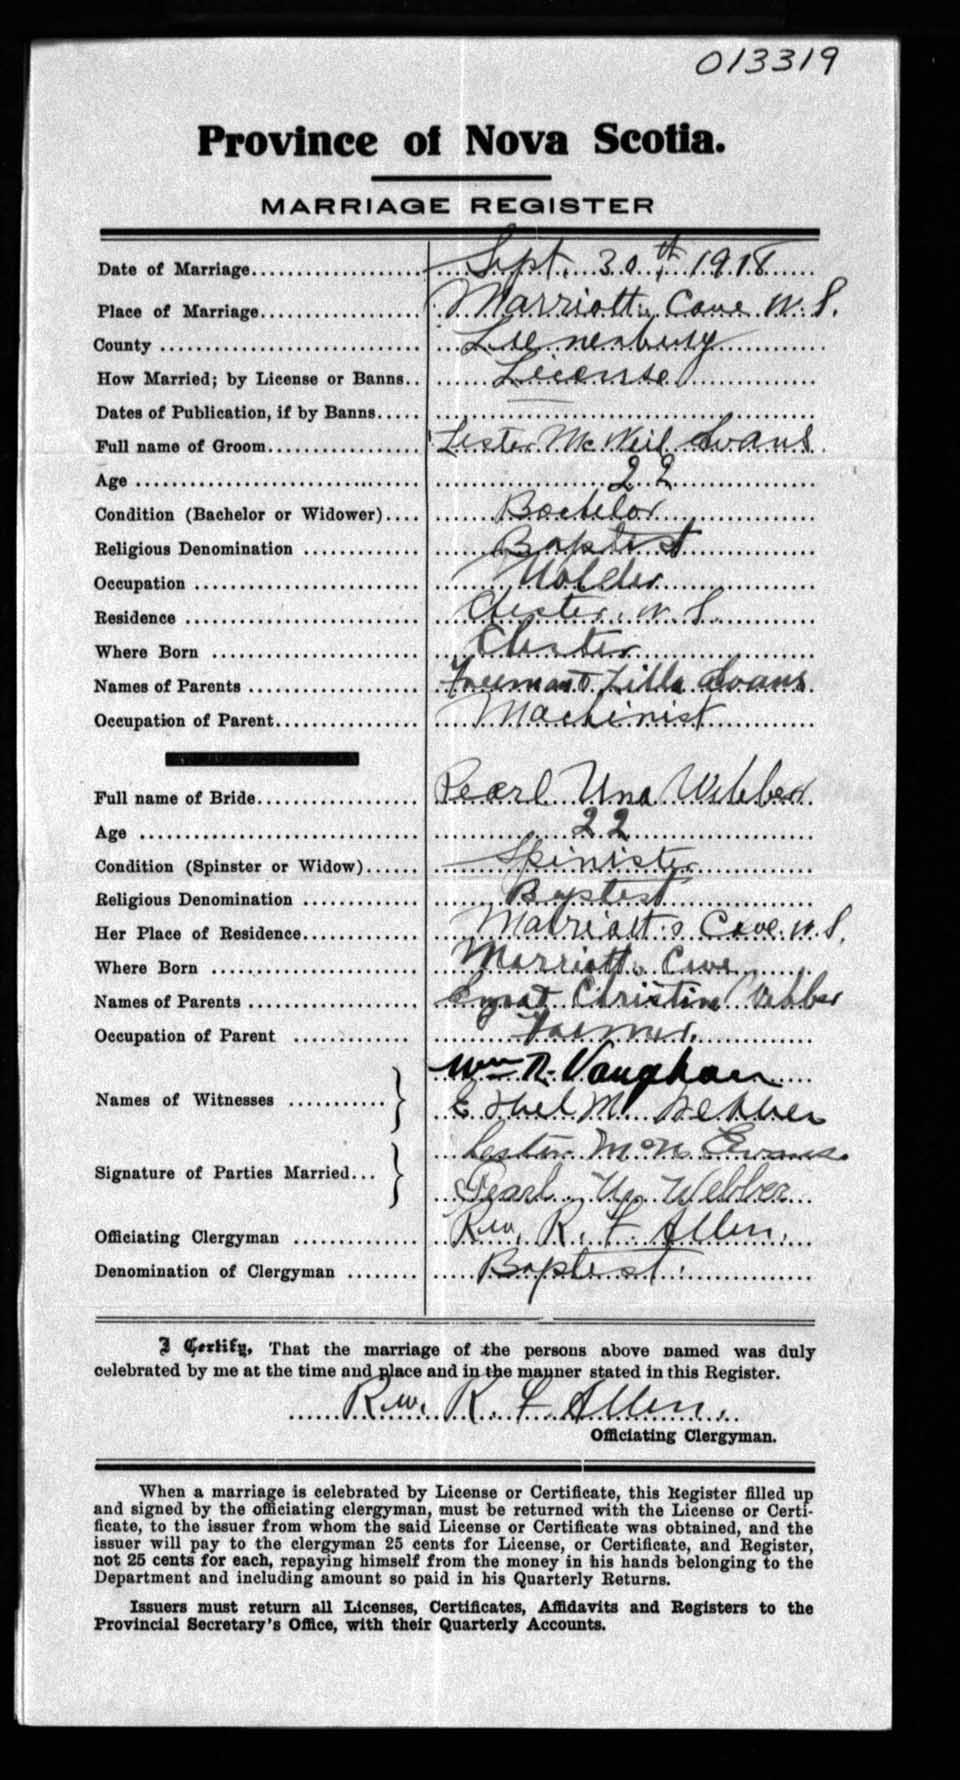 013319
Province of Nova Scotia.
MARRIAGE REGISTER
Date of Marriage.................... Sept. 30th, 1918
Place of Marriage.................. Marriotts Cove N. S.
County .............................. Lunenburg
How Married; by License or Banns.. License
Dates of Publication, if by Banns.....
Full name of Groom.................. Lester McNeil Evans
Age ................................. 22
Condition (Bachelor or Widower).... Bachelor
Religious Denomination ............ Baptist
Occupation ......................... Molder
Residence .......................... Chester, N. S.
Where Born ........................ Chester
Names of Parents .................. Lilla Evans
Occupation of Parent............... Machinist
Full name of Bride.................. Pearl Una Webber
Age ................................. 22
Condition (Spinster or Widow)...... Spinister
Religious Denomination ............ Baptist
Her Place of Residence............. Marriotts Cove. N. S.
Where Born ........................ Marriotts Cove
Names of Parents .................. Christina Webber
Occupation of Parent .............. Farmer.
Names of Witnesses ........... Wm R. Vaughan
Ethel M Webber
Signature of Parties Married... Lester McN Evans.
Pearl U. Webber
Officiating Clergyman ............. Rev. R. F. Allen.
Denomination of Clergyman ........ Baptist.
I Certify, That the marriage of the persons above named was duly
celebrated by me at the time and place and in the manner stated in this Register.
Rev. R. F Allen.
Officiating Clergyman.
When a marriage is celebrated by License or Certificate, this Register filled up
and signed by the officiating clergyman, must be returned with the License or Certi-
ficate, to the issuer from whom the said License or Certificate was obtained, and the
issuer will pay to the clergyman 25 cents for License, or Certificate, and Register,
not 25 cents for each, repaying himself from the money in his hands belonging to the
Department and including amount so paid in his Quarterly Returns.
Issuers must return all Licenses, Certificates, Affidavits and Registers to the
Provincial Secretary's Office, with their Quarterly Accounts.